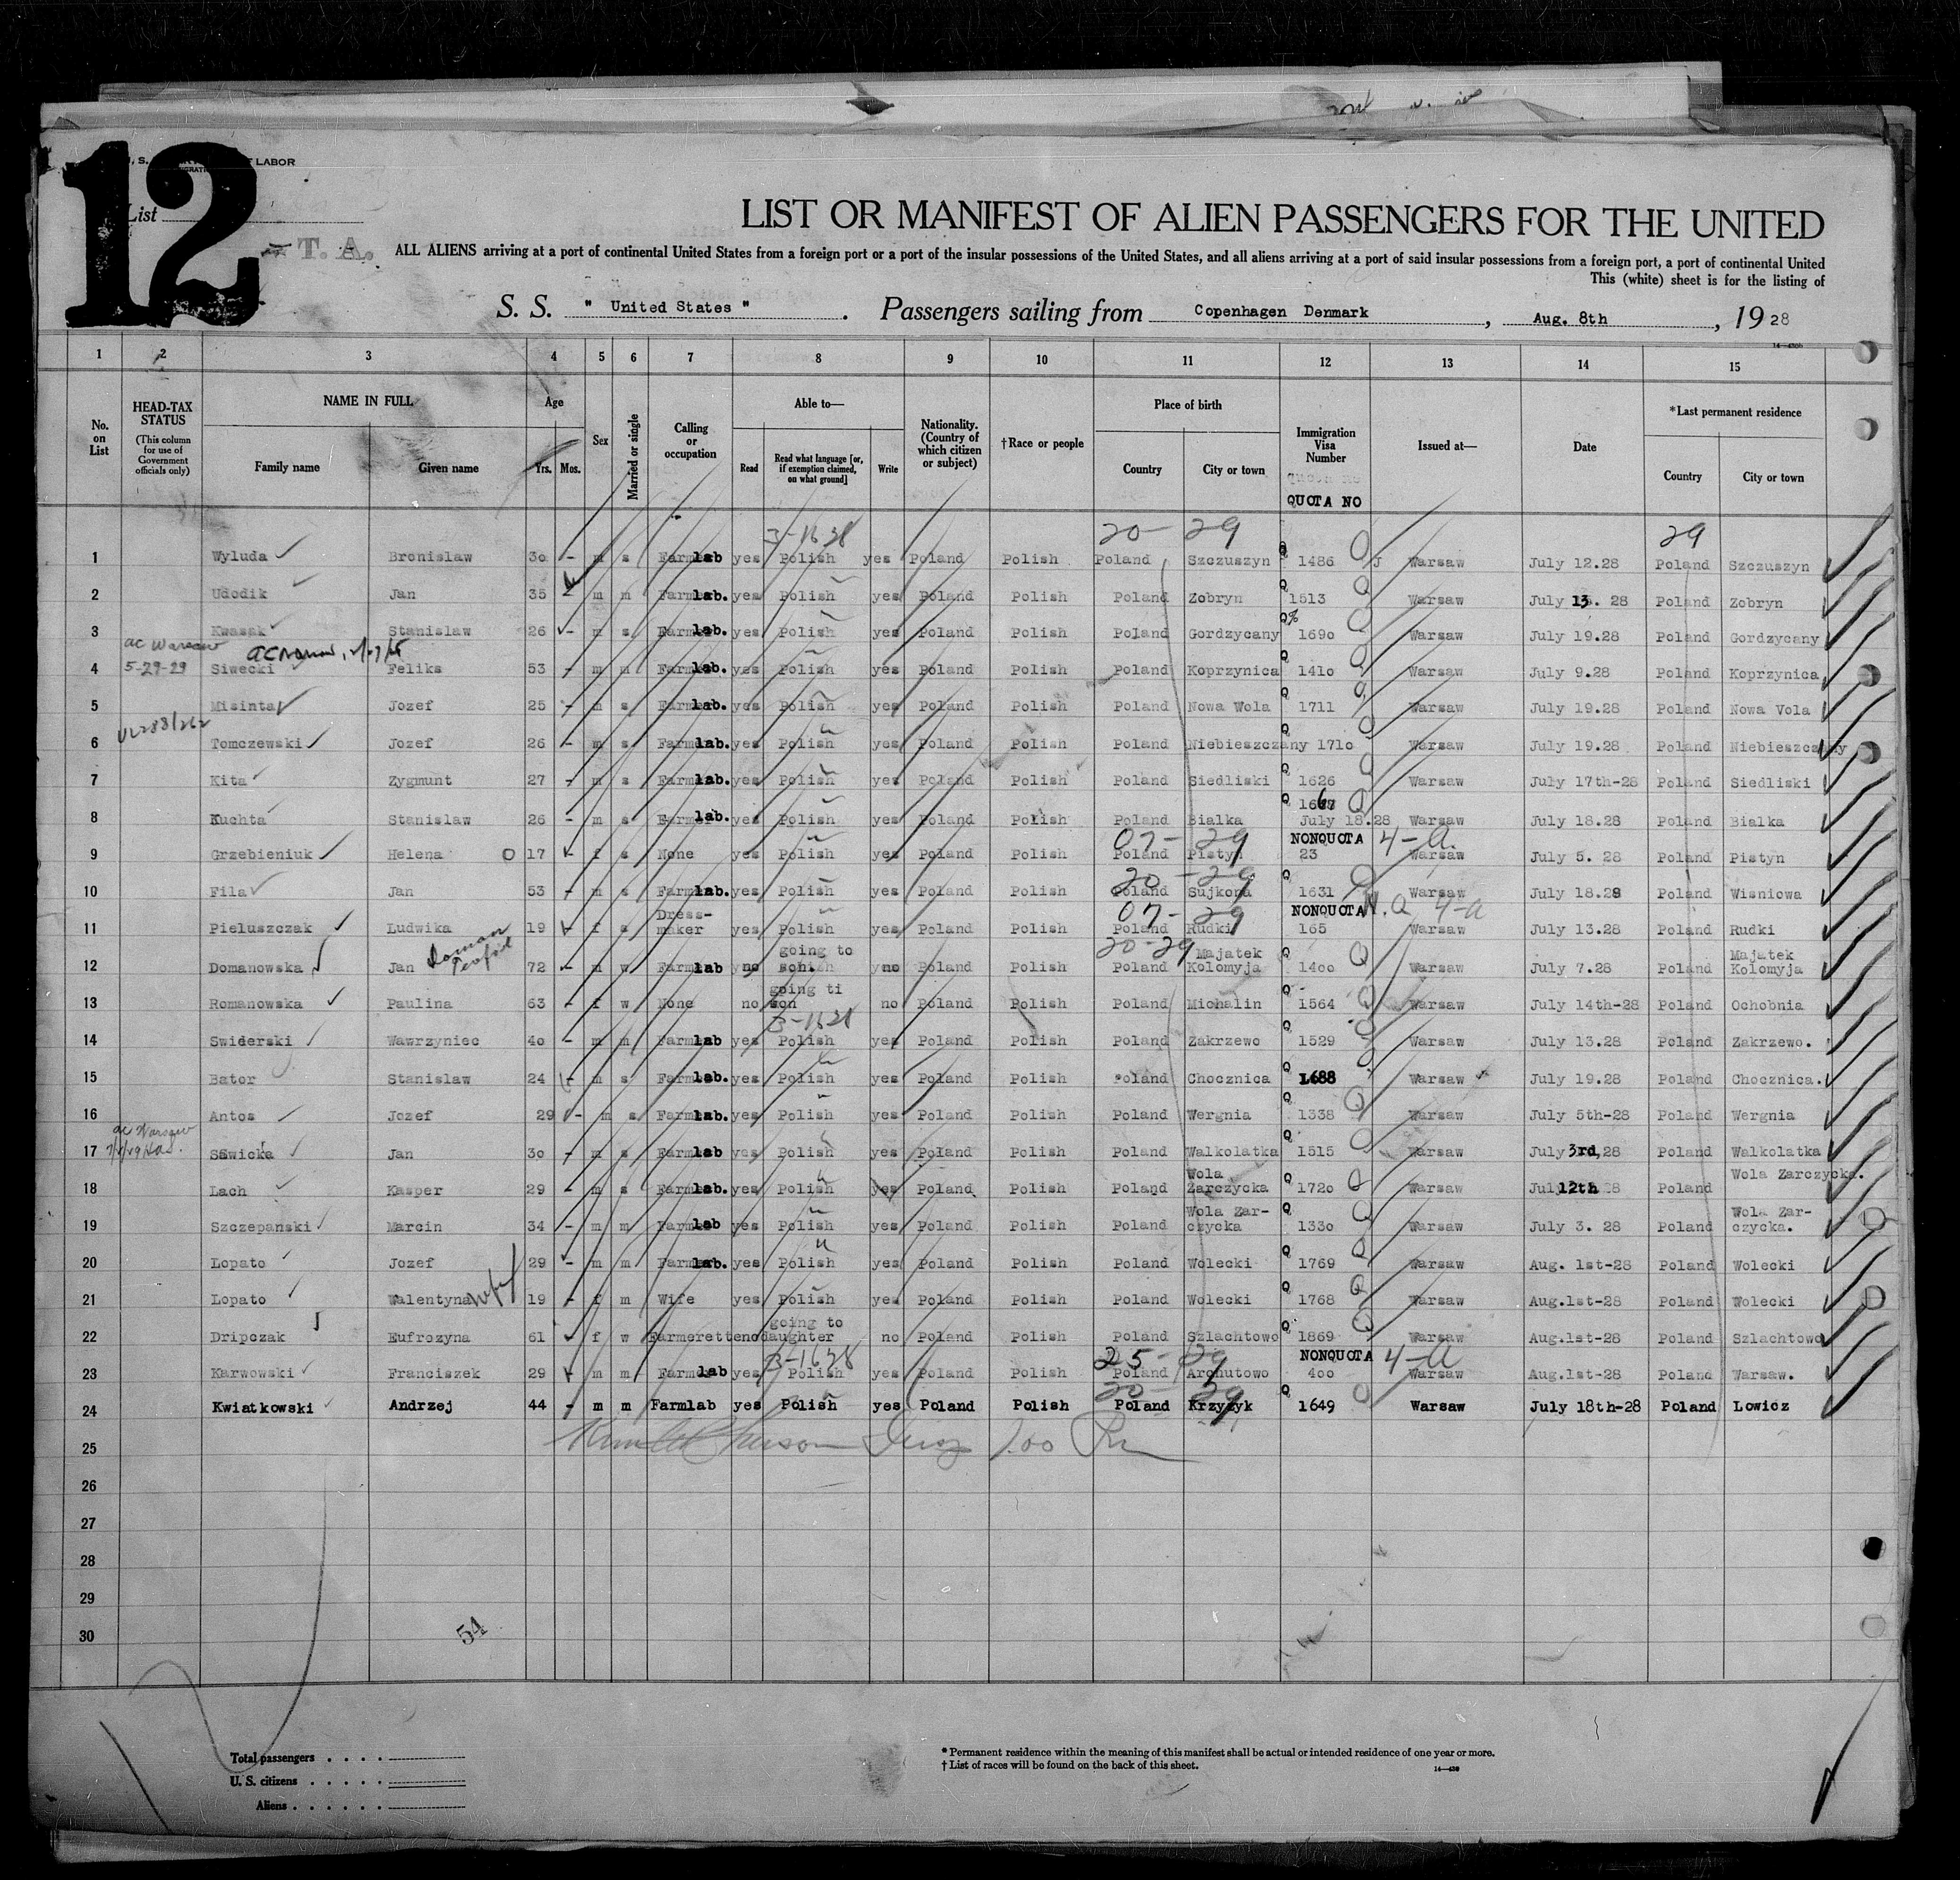 12
U. S. LABOR
List
T. A.
LIST OR MANIFEST OF ALIEN PASSENGERS FOR THE UNITED
ALL ALIENS arriving at a port of continental United States from a foreign port or a port of the insular possessions of the United States, and all aliens arriving at a port of said insular possessions from a foreign port, a port of continental United
This (white) sheet is for the listing of
S. S. " United States " . Passengers sailing from Copenhagen Denmark , Aug. 8th , 19 28
1 2 3 4 5 6 7 8 9 10 11 12 13 14 15
No. on List
HEAD-TAX STATUS (This column for use of Government officials only)
NAME IN FULL
Family name Given name
Age
Yrs. Mos.
Sex
Married or single
Calling or occupation
Able to—
Read Read what language [or, if exemption claimed, on what ground] Write
Nationality. (Country of which citizen or subject)
†Race or people
Place of birth
Country City or town
Immigration Visa Number
QUOTA NO
Issued at—
Date
*Last permanent residence
Country City or town
3-1628 20-29 29
1 Wyluda Bronislaw 30 - m s Farmlab yes Polish yes Poland Polish Poland Szczuszyn Q 1486 Warsaw July 12.28 Poland Szczuszyn
2 Udodik Jan 35 - m m Farmlab. yes Polish yes Poland Polish Poland Zobryn Q 1513 Warsaw July 13. 28 Poland Zobryn
3 Kwasak Stanislaw 26 - m s Farmlab. yes Polish yes Poland Polish Poland Gordzycany 1690 Warsaw July 19.28 Poland Gordzycany
ac Warsaw
5-29-29
4 Siwecki Feliks 53 - m m Farmlab. yes Polish yes Poland Polish Poland Koprzynica Q 1410 Warsaw July 9.28 Poland Koprzynica
5 Misinta Jozef 25 - m s Farmlab. yes Polish yes Poland Polish Poland Nowa Wola Q 1711 Warsaw July 19.28 Poland Nowa Vola
6 Tomczewski Jozef 26 - m s Farmlab. yes Polish yes Poland Polish Poland Niebieszczany Q 1710 Warsaw July 19.28 Poland Niebieszczany
7 Kita Zygmunt 27 - m s Farmlab. yes Polish yes Poland Polish Poland Siedliski Q 1626 Warsaw July 17th-28 Poland Siedliski
8 Kuchta Stanislaw 26 - m s Farmer lab. yes Polish yes Poland Polish Poland Bialka Q July 18.28 Warsaw July 18.28 Poland Bialka
07-29 NONQUOTA 4-a.
9 Grzebieniuk Helena 17 - f s None yes Polish yes Poland Polish Poland Pistyn 23 Warsaw July 5. 28 Poland Pistyn
20-29
10 Fila Jan 53 - m s Farmlab. yes Polish yes Poland Polish Poland Sujkona Q 1631 Warsaw July 18.28 Poland Wisniowa
07-29 NONQUOTA N.a 4-a
11 Pieluszczak Ludwika 19 - f s Dress-maker yes Polish yes Poland Polish Poland Rudki 165 Warsaw July 13.28 Poland Rudki
20-29
12 Domanowska Jan 72 - m w Farmlab no going to no Poland Polish Poland Majatek Kolomyja Q 1400 Warsaw July 7.28 Poland Majatek Kolomyja
13 Romanowska Paulina 63 - f w None no going ti son no Poland Polish Poland Michalin Q 1564 Warsaw July 14th-28 Poland Ochobnia
3-1628
14 Swiderski Wawrzyniec 40 - m m Farmlab yes Polish yes Poland Polish Poland Zakrzewo Q 1529 Warsaw July 13.28 Poland Zakrzewo.
15 Bator Stanislaw 24 - m s Farmlab. yes Polish yes Poland Polish Poland Chocznica Q 1688 Warsaw July 19.28 Poland Chocznica.
16 Antos Jozef 29 - m s Farmlab. yes Polish yes Poland Polish Poland Wergnia Q 1338 Warsaw July 5th-28 Poland Wergnia
ac Warsaw
17 Sawicka Jan 30 - m s Farmlab yes Polish yes Poland Polish Poland Walkolatka Q 1515 Warsaw July 3rd,28 Poland Walkolatka
18 Lach Kasper 29 - m s Farmlab. yes Polish yes Poland Polish Poland Wola Zarczycka Q 1720 Warsaw July 12th 28 Poland Wola Zarczycka.
19 Szczepanski Marcin 34 - m m Farmlab yes Polish yes Poland Polish Poland Wola Zar-czycka Q 1330 Warsaw July 3. 28 Poland Wola Zar-czycka.
20 Lopato Jozef 29 - m m Farmlab. yes Polish yes Poland Polish Poland Wolecki Q 1769 Warsaw Aug. 1st-28 Poland Wolecki
21 Lopato Walentyna wife 19 - f m Wife yes Polish yes Poland Polish Poland Wolecki Q 1768 Warsaw Aug.1st-28 Poland Wolecki
22 Dripczak Eufrozyna 61 f w Farmerette no going to daughter no Poland Polish Poland Szlachtowo Q 1869 Warsaw Aug.1st-28 Poland Szlachtowo
3-1628 25-29 NONQUOTA 4-a
23 Karwowski Franciszek 29 - m m Farmlab yes Polish yes Poland Polish Poland Archutowo 400 Warsaw Aug.1st-28 Poland Warsaw.
20-29
24 Kwiatkowski Andrzej 44 - m m Farmlab yes Polish yes Poland Polish Poland Krzyzyk Q 1649 Warsaw July 18th-28 Poland Lowicz
25
26
27
28
29
30
54
Total passengers . . . .
U. S. citizens . . . . .
Aliens . . . . . .
* Permanent residence within the meaning of this manifest shall be actual or intended residence of one year or more.
† List of races will be found on the back of this sheet.
14—430